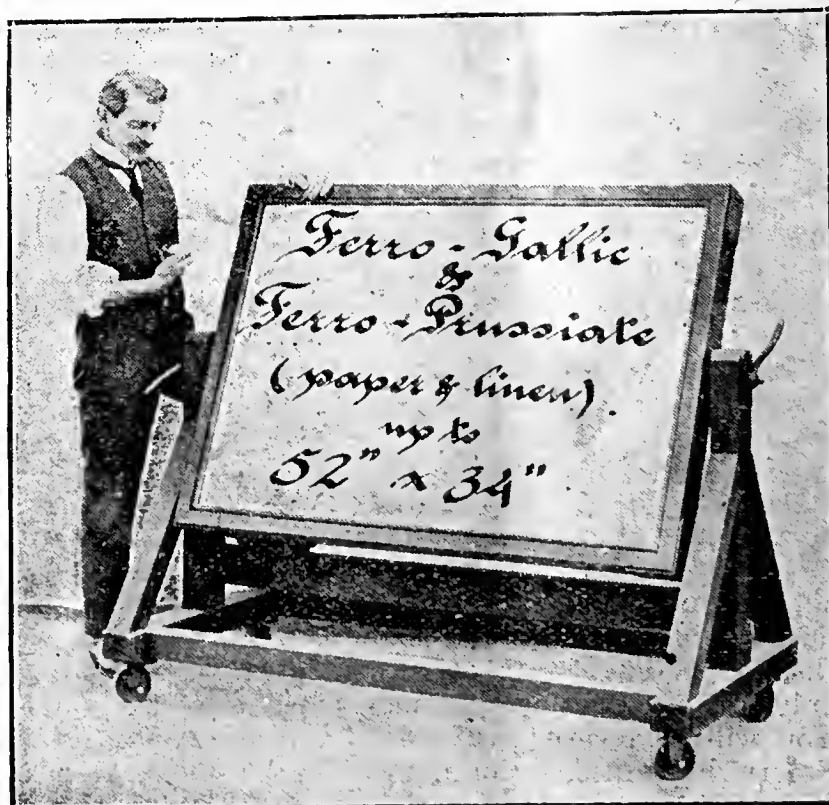 Ferro - Gallic
&
Ferro - Prussiate
(paper & linen)
up to
52" x 34"